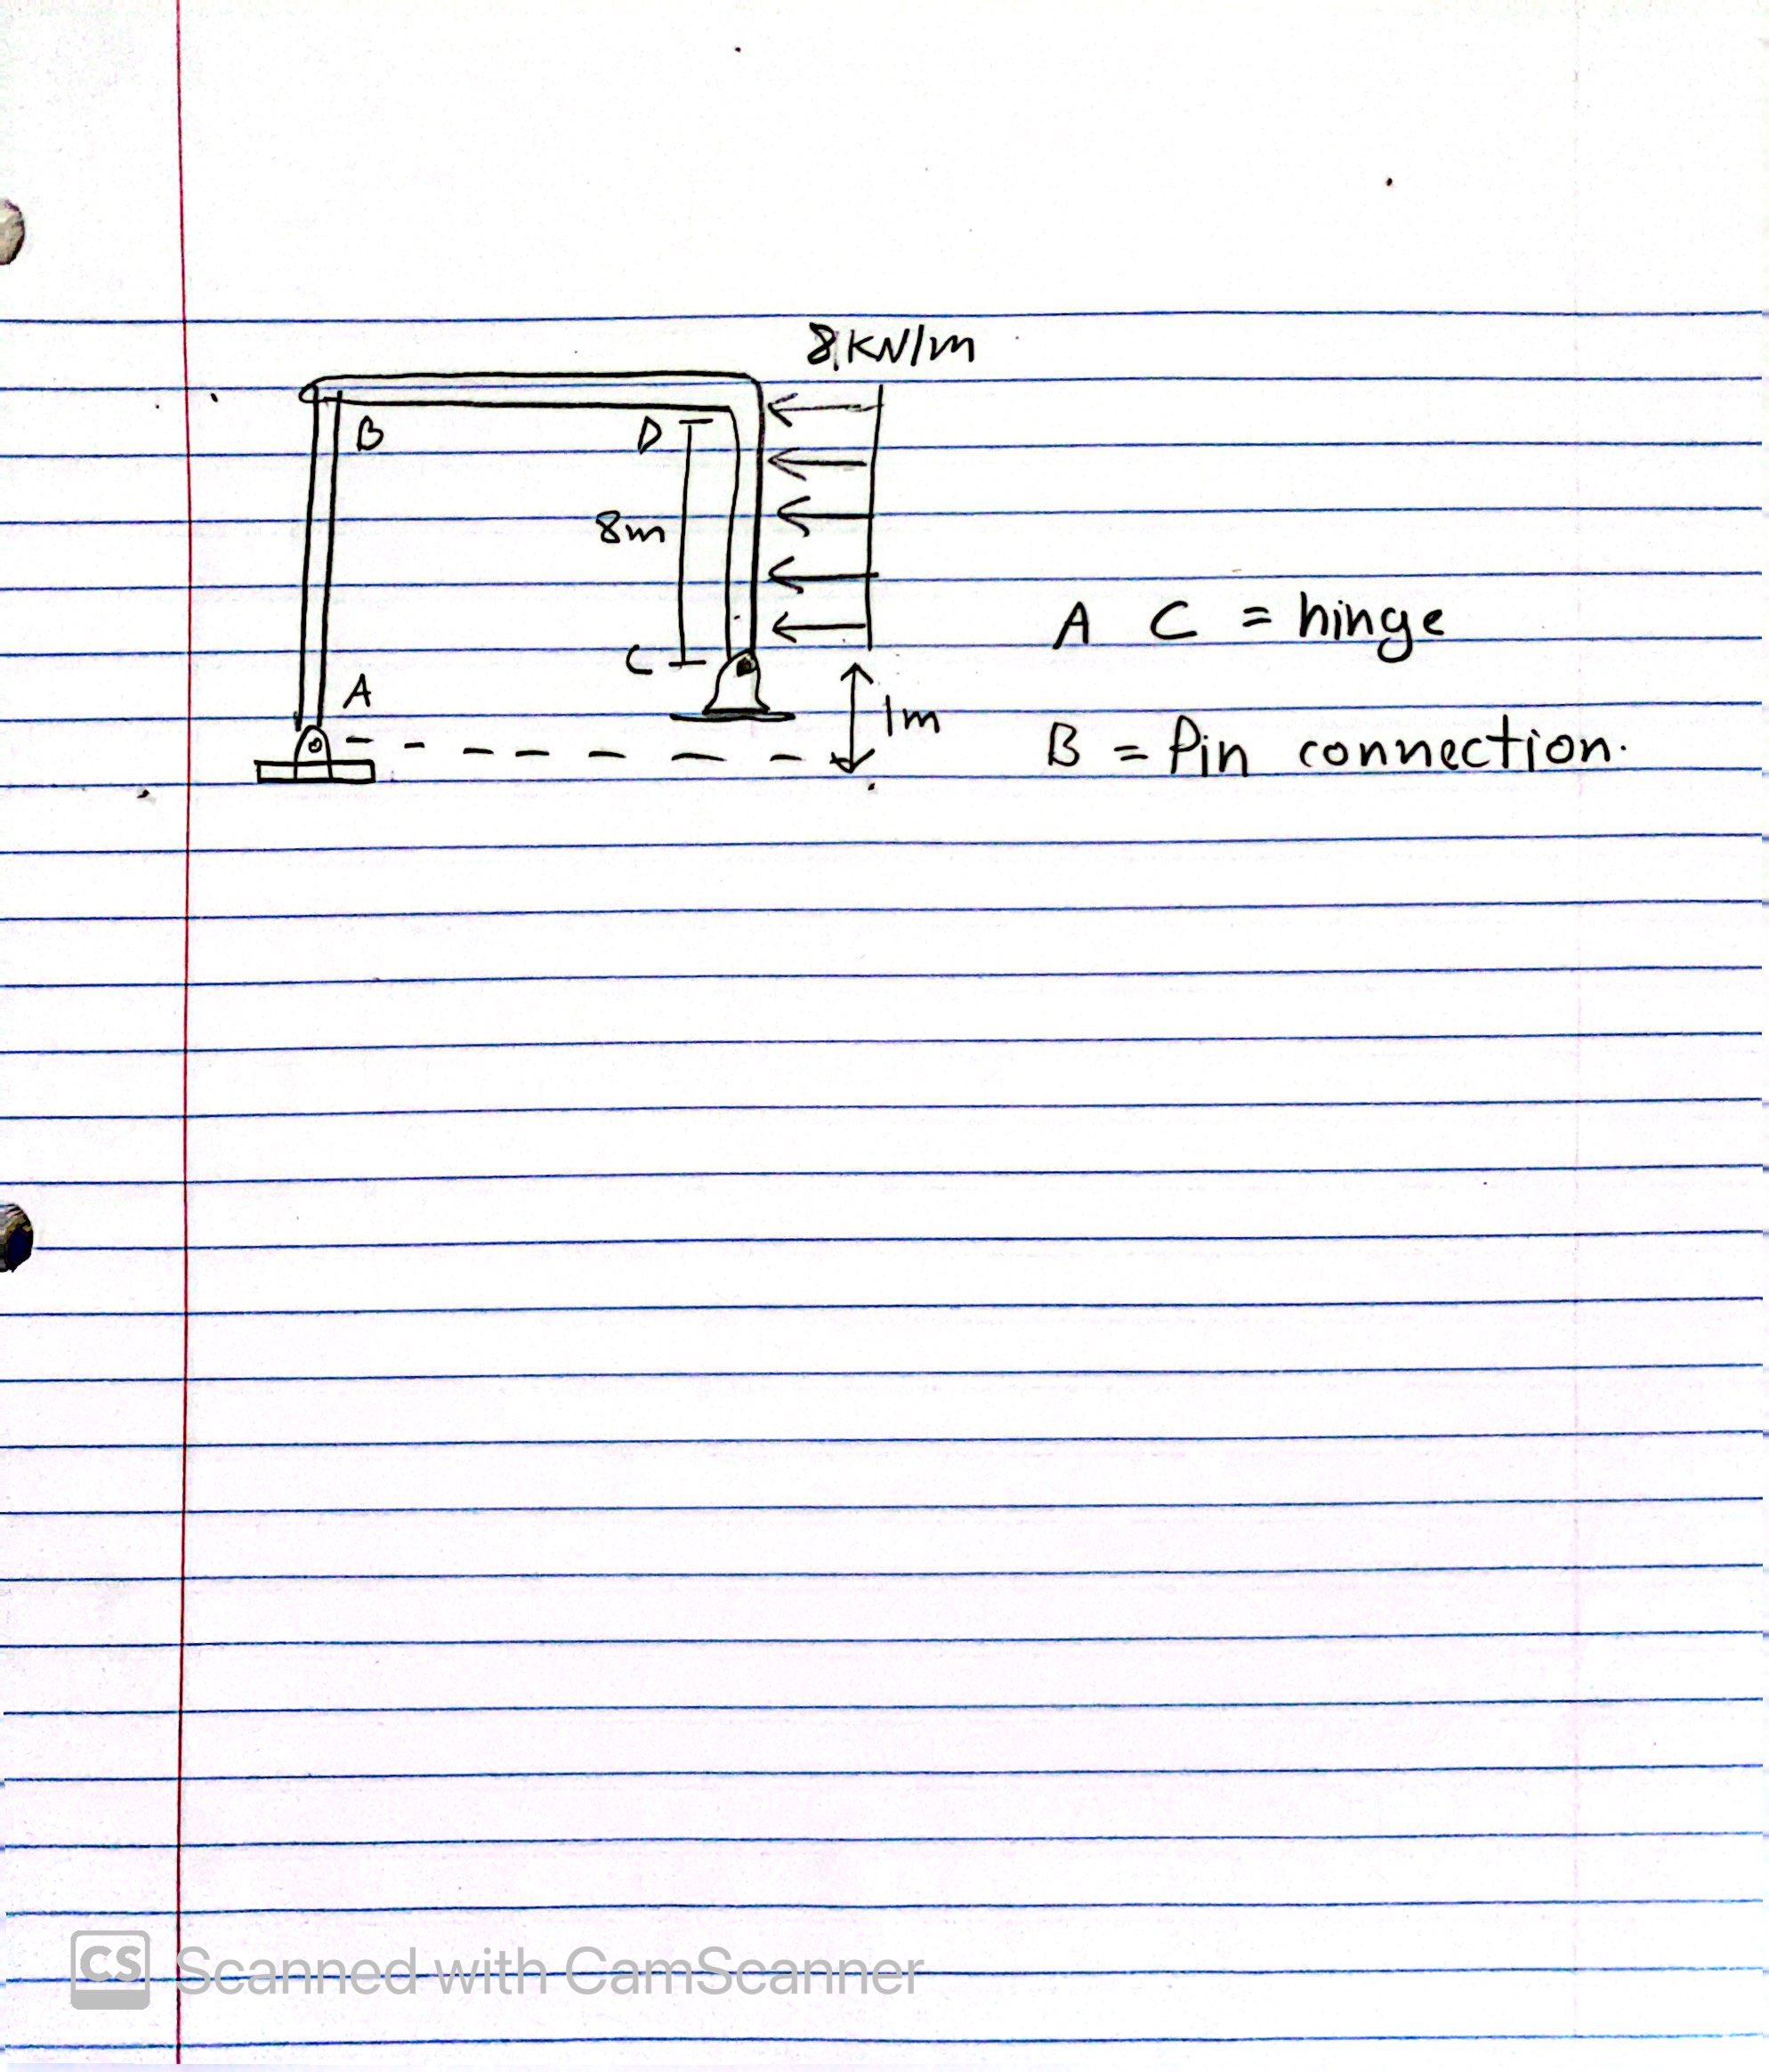 8 KN/m
B
D
8m
C
A
1m
A C = hinge
B = Pin connection.
CS Scanned with CamScanner